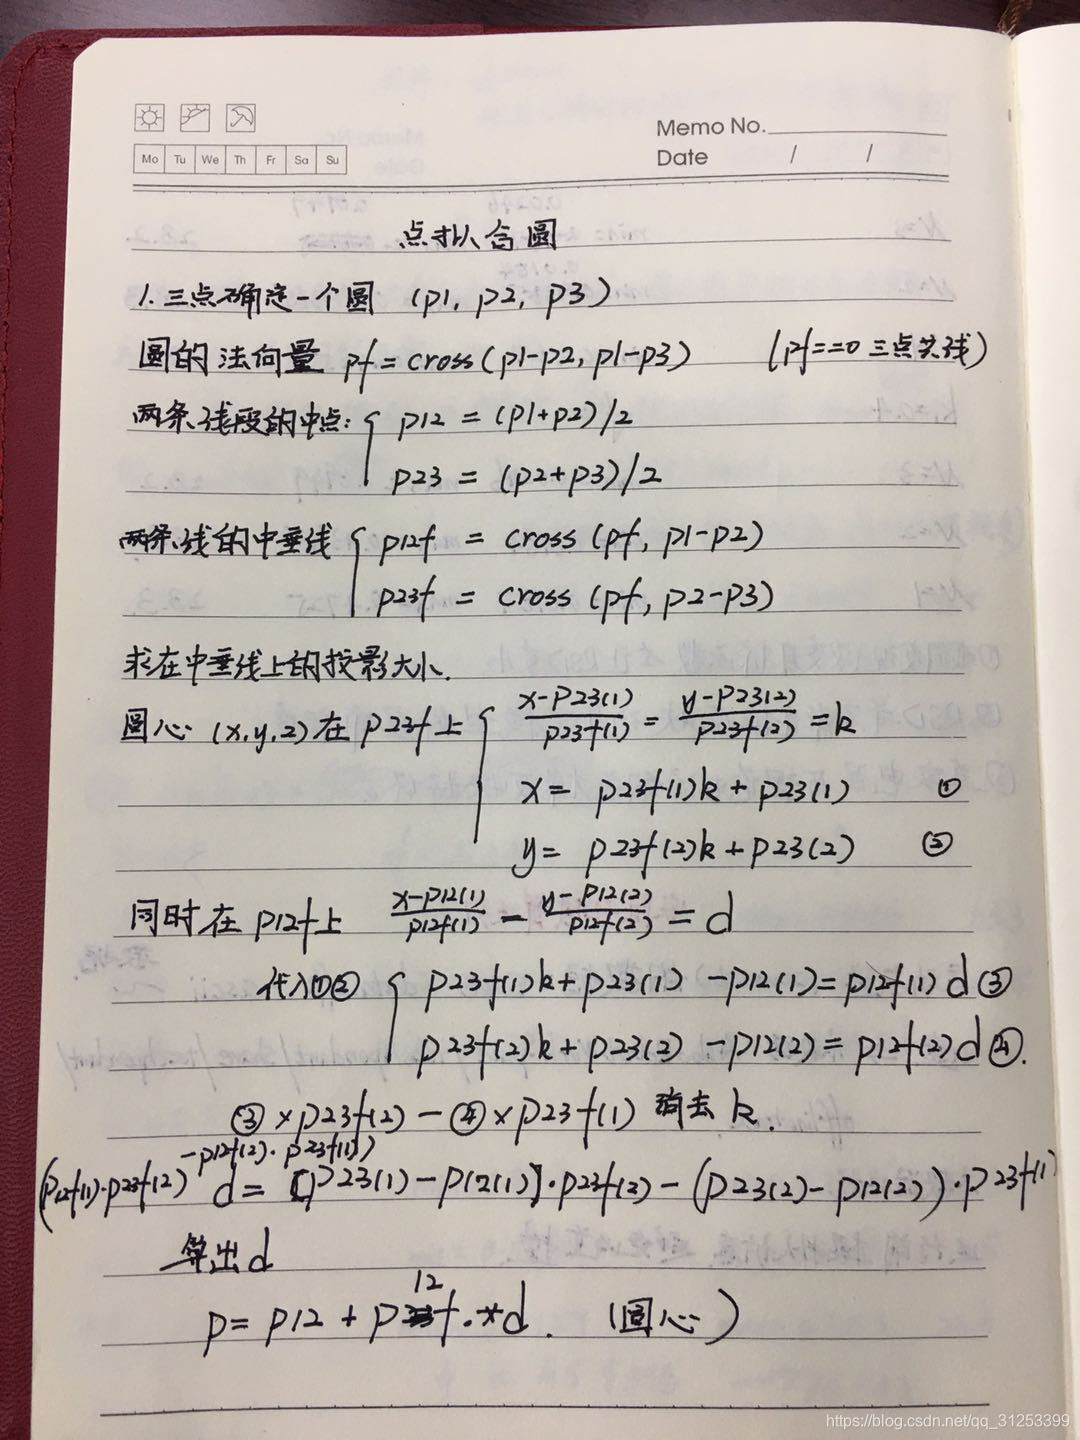 Memo No.
Date / /
Mo Tu We Th Fr Sa Su
点拟合圆
1. 三点确定一个圆 (p1, p2, p3)
圆的法向量 pf = cross(p1-p2, p1-p3) (pf==0 三点共线)
两条线段的中点: { p12 = (p1+p2)/2
p23 = (p2+p3)/2
两条线的中垂线 { p12f = cross(pf, p1-p2)
p23f = cross(pf, p2-p3)
求在中垂线上的投影大小.
圆心 (x,y,z) 在 p23f 上 { (x-p23(1))/p23f(1) = (y-p23(2))/p23f(2) = k
x = p23f(1)k + p23(1) ①
y = p23f(2)k + p23(2) ②
同时在 p12f 上 (x-p12(1))/p12f(1) = (y-p12(2))/p12f(2) = d
代入①② { p23f(1)k + p23(1) - p12(1) = p12f(1) d ③
p23f(2)k + p23(2) - p12(2) = p12f(2) d ④.
③ × p23f(2) - ④ × p23f(1) 消去 k.
(p12f(1)·p23f(2) - p12f(2)·p23f(1)) d = [p23(1) - p12(1)]·p23f(2) - (p23(2) - p12(2))·p23f(1)
算出 d
p = p12 + p12f.*d. (圆心)
https://blog.csdn.net/qq_31253399